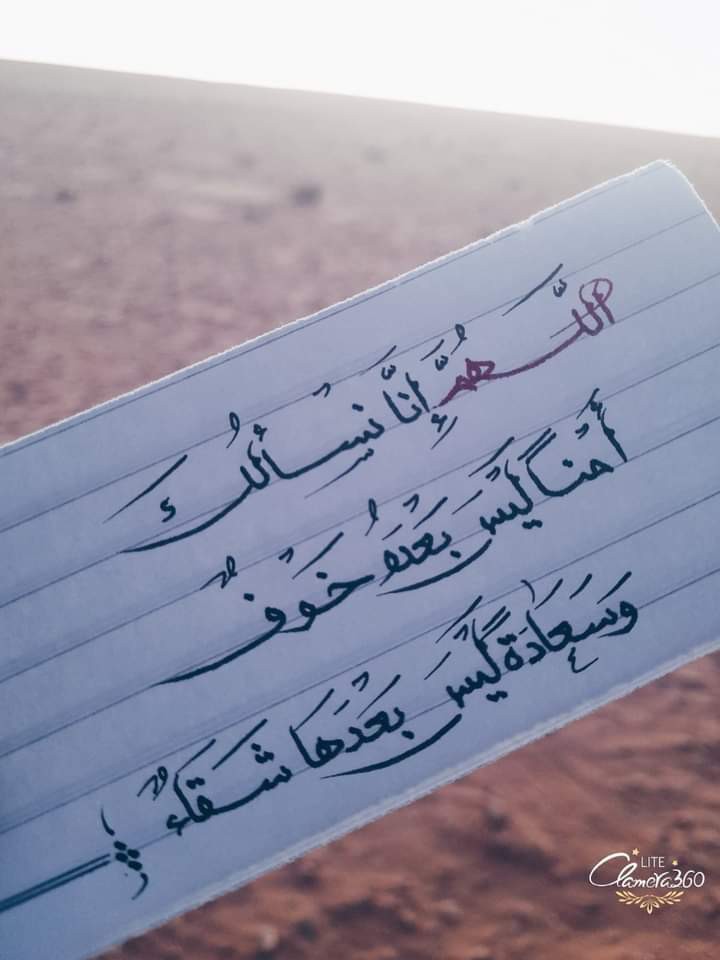 اللَّهُمَّ إِنَّا نَسْأَلُكَ
أَمْنًا لَيْسَ بَعْدَهُ خَوْفٌ
وَسَعَادَةً لَيْسَ بَعْدَهَا شَقَاءٌ
LITE
Camera360